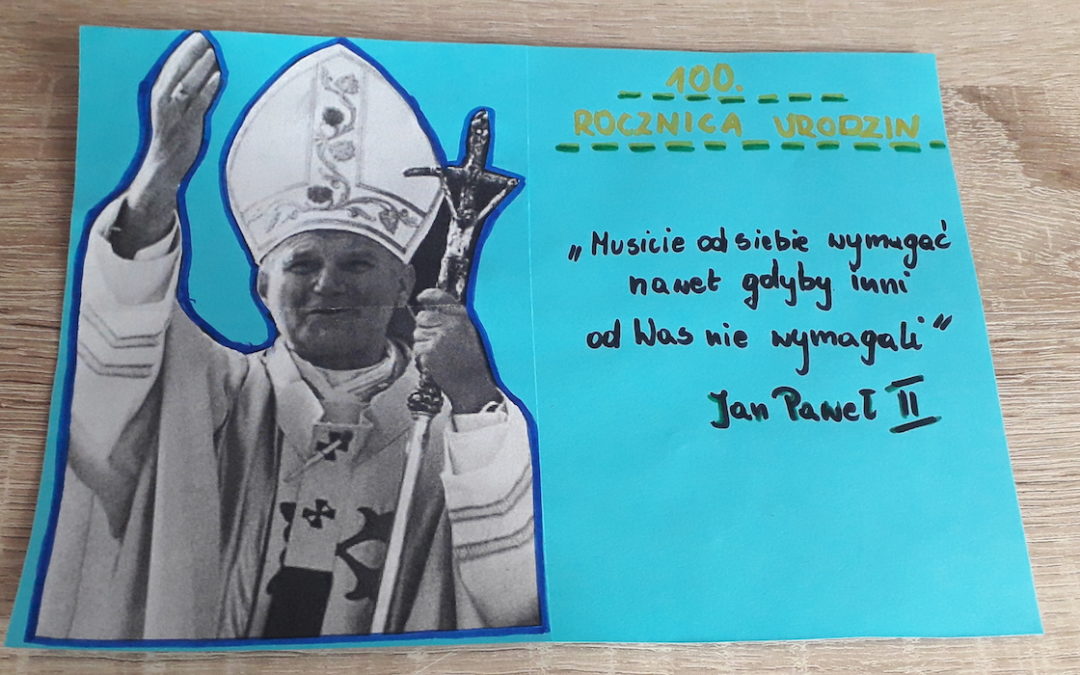 100.
ROCZNICA URODZIN
„Musicie od siebie wymagać
nawet gdyby inni
od Was nie wymagali”
Jan Paweł II